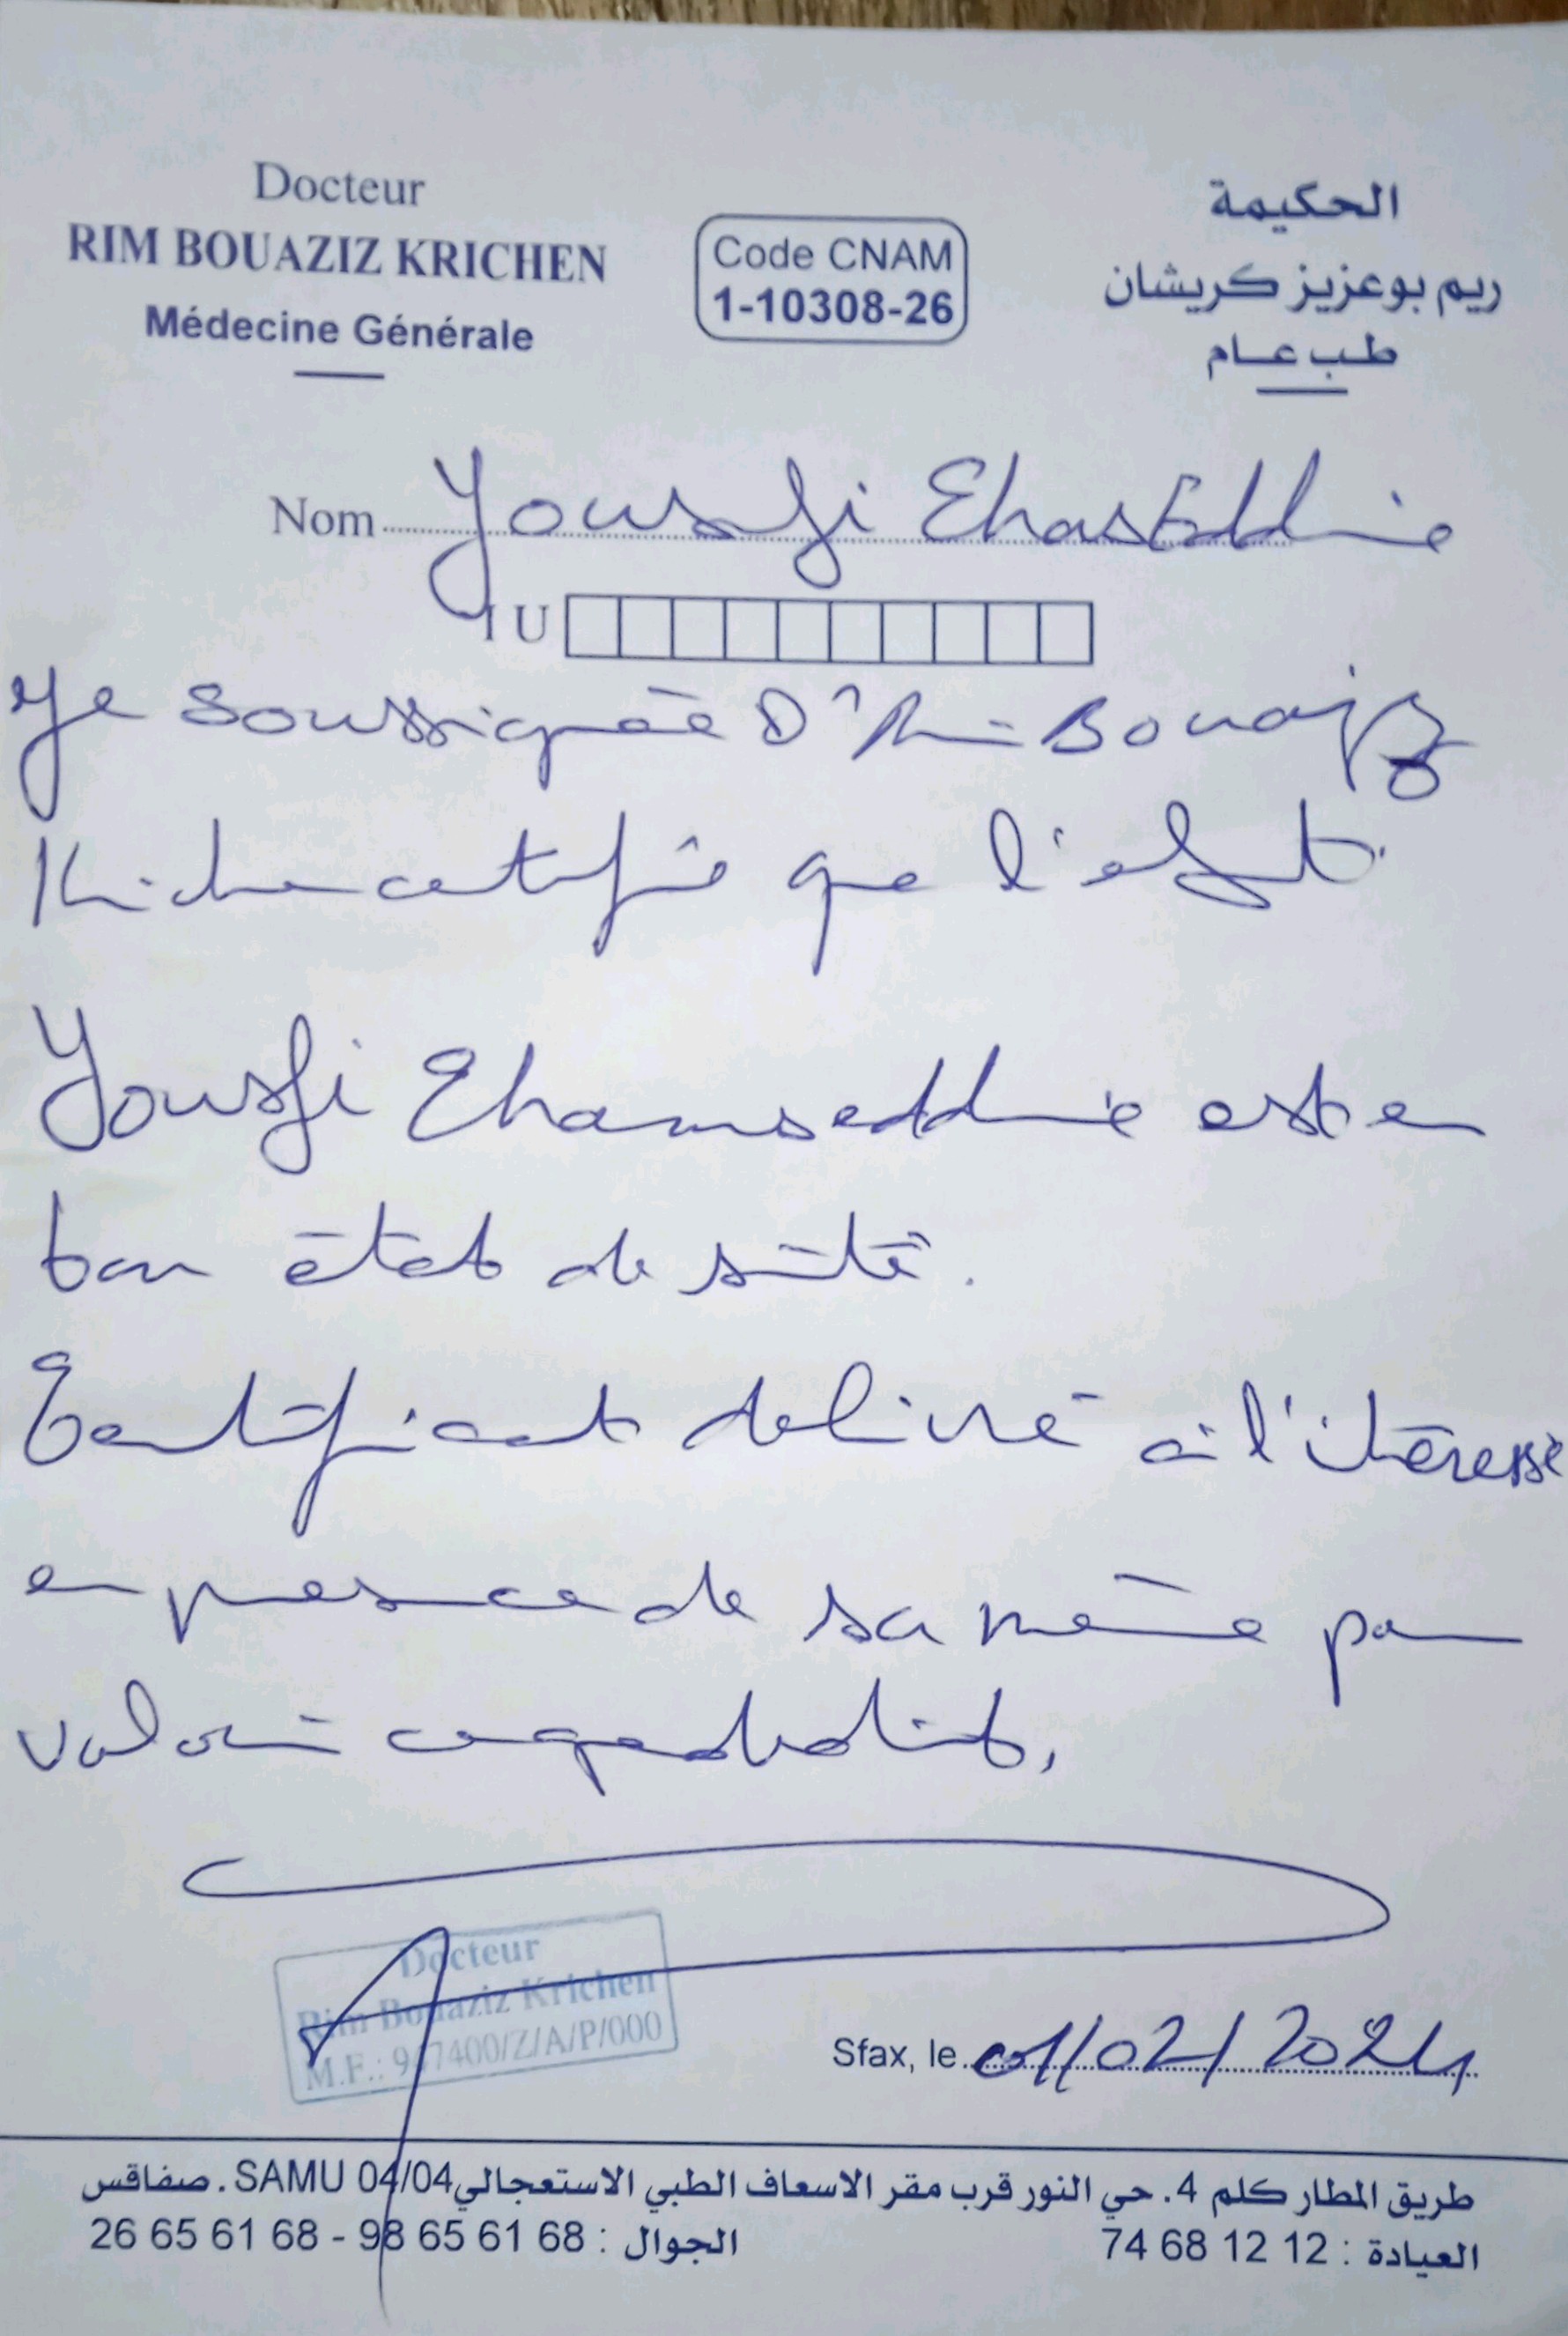 Docteur
RIM BOUAZIZ KRICHEN
Médecine Générale
Code CNAM
1-10308-26
الحكيمة
ريم بوعزيز كريشان
طب عام
Nom Yousfi ChamsEddine
I U
Je soussignée Dr Rim Bouaziz
Krichen certifie que l'enfant
Yousfi Chamseddine est en
bon état de santé.
Certificat délivré à l'intéressé
en présence de sa mère pour
valoir ce que de droit.
Docteur
Rim Bouaziz Krichen
M.F.: 947400/Z/A/P/000
Sfax, le 01/02/2024
طريق المطار كلم 4. حي النور قرب مقر الاسعاف الطبي الاستعجالي SAMU 04/04. صفاقس
العيادة : 74 68 12 12 الجوال : 98 65 61 68 - 26 65 61 68